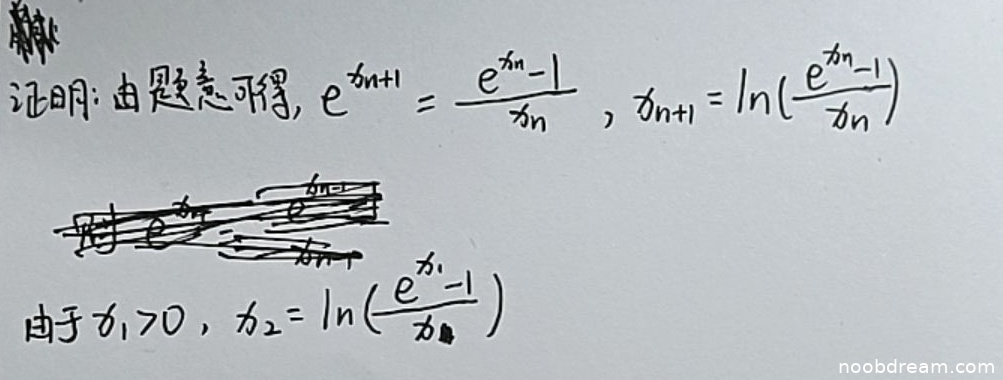 证明: 由题意可得, e^{x_{n+1}} = \frac{e^{x_n}-1}{x_n} , x_{n+1} = ln(\frac{e^{x_n}-1}{x_n})
由于 x_1>0 , x_2 = ln(\frac{e^{x_1}-1}{x})
noobdream.com